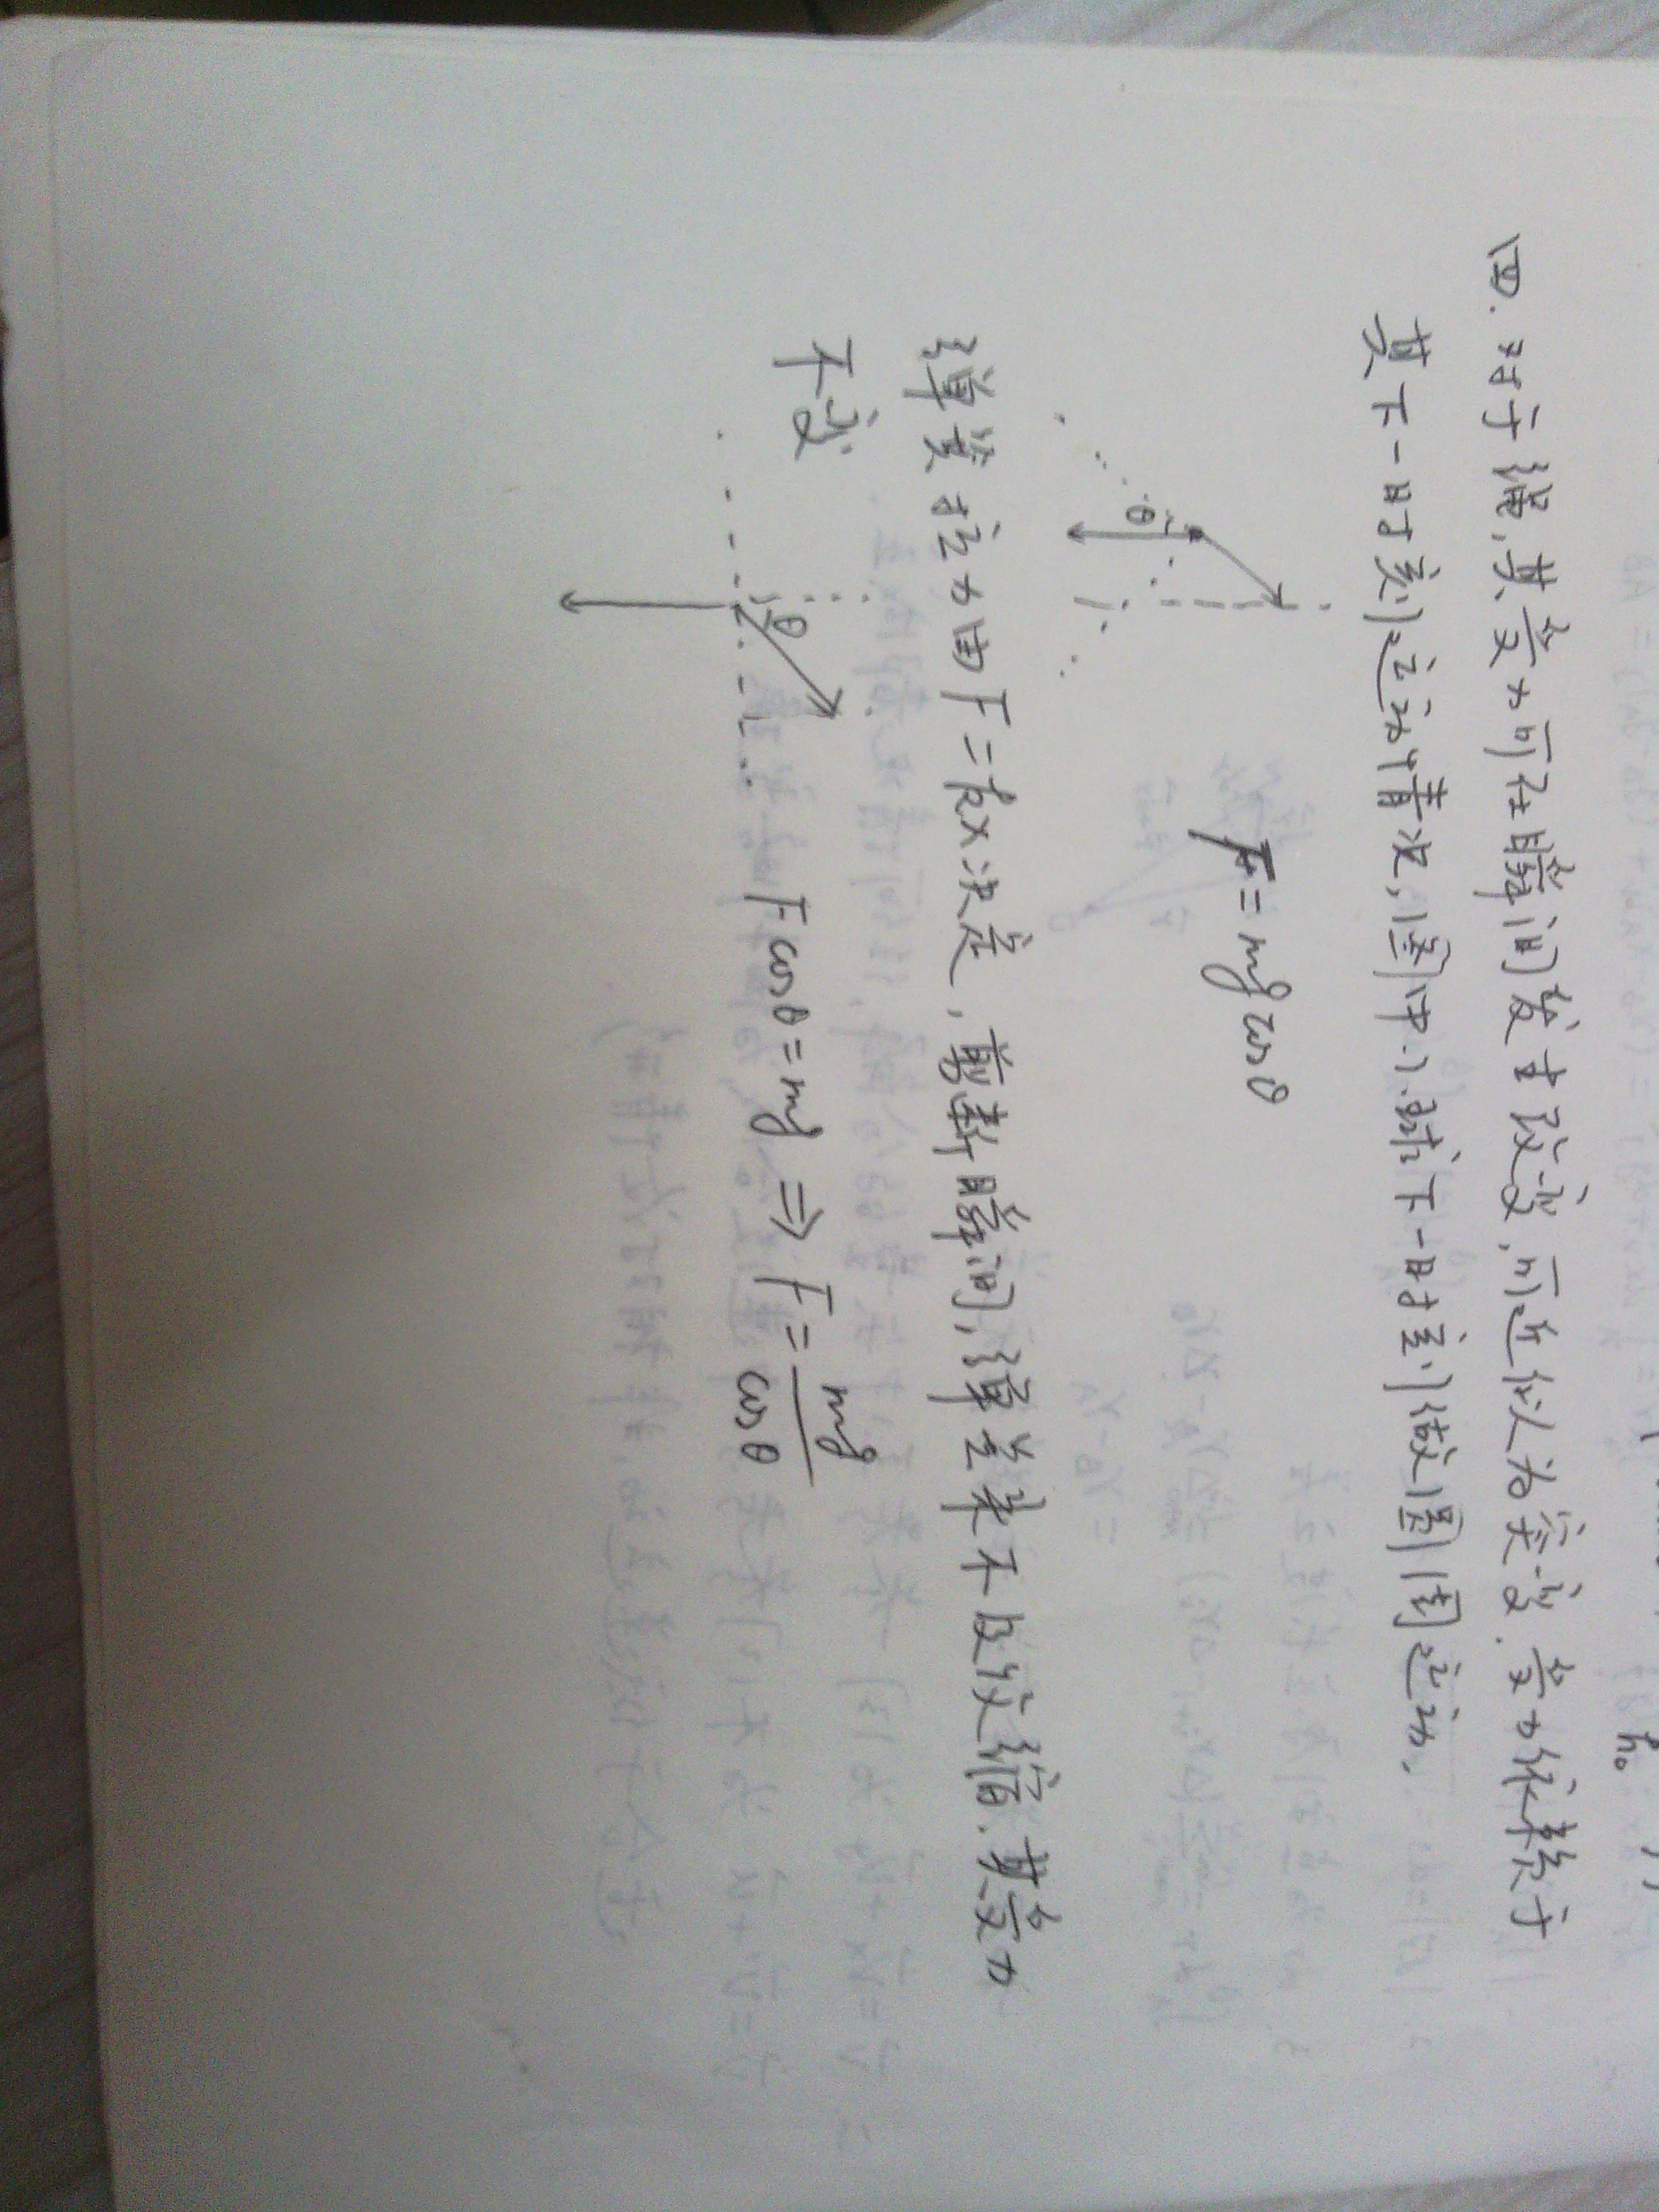 h₀
四. 对于绳,其受力可在瞬间发生改变,可近似为突变.受力依赖于
其下一时刻运动情况,图中小球下一时刻做圆周运动.
F=mgcosθ
θ
弹簧拉力由F=kx决定,剪断瞬间,弹簧来不及收缩.其受力
不变
θ
Fcosθ=mg ⇒ F=mg/cosθ